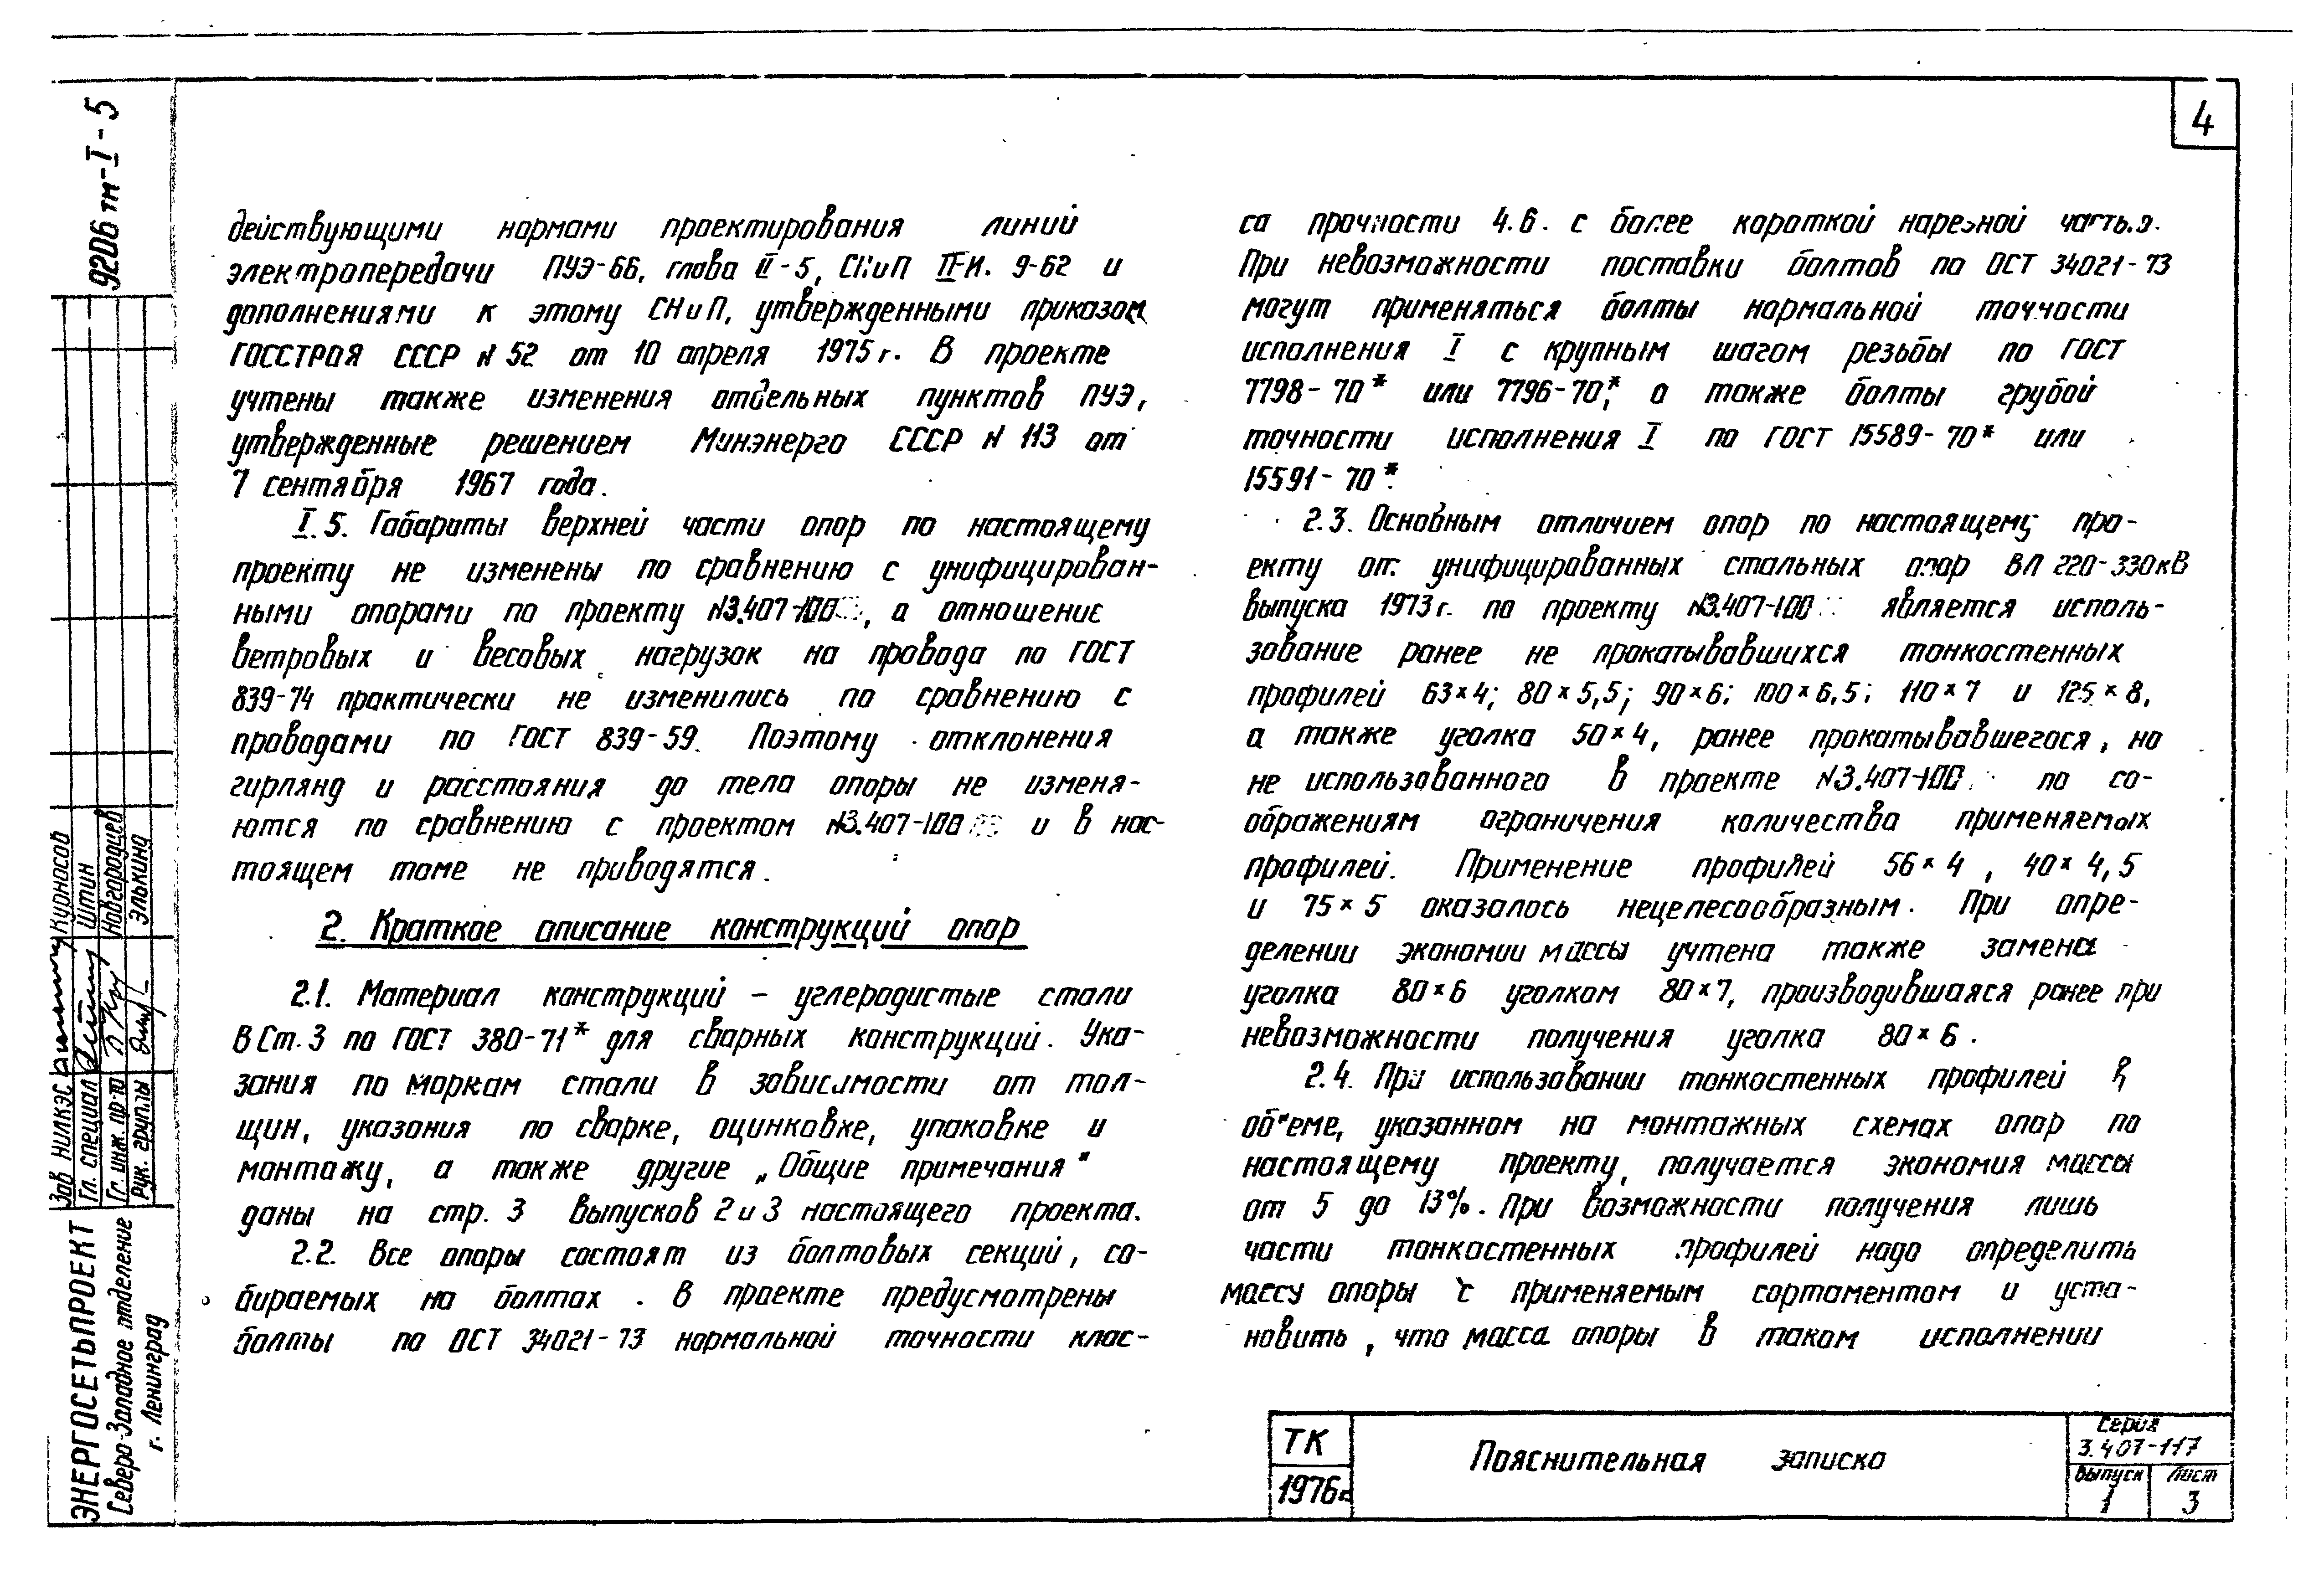 4
9206тм-I-5
действующими нормами проектирования линий
электропередачи ПУЭ-66, глава II-5, СНиП II-И. 9-62 и
дополнениями к этому СНиП, утвержденными приказом
ГОССТРОЯ СССР N 52 от 10 апреля 1975 г. В проекте
учтены также изменения отдельных пунктов ПУЭ,
утвержденные решением Минэнерго СССР N 113 от
7 сентября 1967 года.
I.5. Габариты верхней части опор по настоящему
проекту не изменены по сравнению с унифицирован-
ными опорами по проекту N3.407-100, а отношение
ветровых и весовых нагрузок на провода по ГОСТ
839-74 практически не изменились по сравнению с
проводами по ГОСТ 839-59. Поэтому отклонения
гирлянд и расстояния до тела опоры не изменя-
ются по сравнению с проектом N3.407-100 и в нас-
тоящем томе не приводятся.
2. Краткое описание конструкций опор
2.1. Материал конструкций – углеродистые стали
ВСт.3 по ГОСТ 380-71* для сварных конструкций. Ука-
зания по маркам стали в зависимости от тол-
щин, указания по сварке, оцинковке, упаковке и
монтажу, а также другие „Общие примечания"
даны на стр. 3 выпусков 2 и 3 настоящего проекта.
2.2. Все опоры состоят из болтовых секций, со-
бираемых на болтах. В проекте предусмотрены
болты по ОСТ 34021-73 нормальной точности клас-
са прочности 4.6. с более короткой нарезной частью.
При невозможности поставки болтов по ОСТ 34021-73
могут применяться болты нормальной точности
исполнения I с крупным шагом резьбы по ГОСТ
7798-70* или 7796-70*, а также болты грубой
точности исполнения I по ГОСТ 15589-70* или
15591-70*.
2.3. Основным отличием опор по настоящему про-
екту от унифицированных стальных опор ВЛ 220-330кВ
выпуска 1973г. по проекту N3.407-100 является исполь-
зование ранее не прокатывавшихся тонкостенных
профилей 63×4; 80×5,5; 90×6; 100×6,5; 110×7 и 125×8,
а также уголка 50×4, ранее прокатывавшегося, но
не использованного в проекте N3.407-100 по со-
ображениям ограничения количества применяемых
профилей. Применение профилей 56×4, 40×4,5
и 75×5 оказалось нецелесообразным. При опре-
делении экономии массы учтена также замена
уголка 80×6 уголком 80×7, производившаяся ранее при
невозможности получения уголка 80×6.
2.4. При использовании тонкостенных профилей в
об"еме, указанном на монтажных схемах опор по
настоящему проекту, получается экономия массы
от 5 до 13%. При возможности получения лишь
части тонкостенных профилей надо определить
массу опоры с применяемым сортаментом и уста-
новить, что масса опоры в таком исполнении
Зав НИЛКЭС Курносов
Гл. специал Штин
Гл. инж. пр-та Новгородцев
Рук. группы Элькинд
ЭНЕРГОСЕТЬПРОЕКТ
Северо-Западное отделение
г. Ленинград
ТК
1976г.
Пояснительная записка
Серия
3.407-117
Выпуск
1
Лист
3